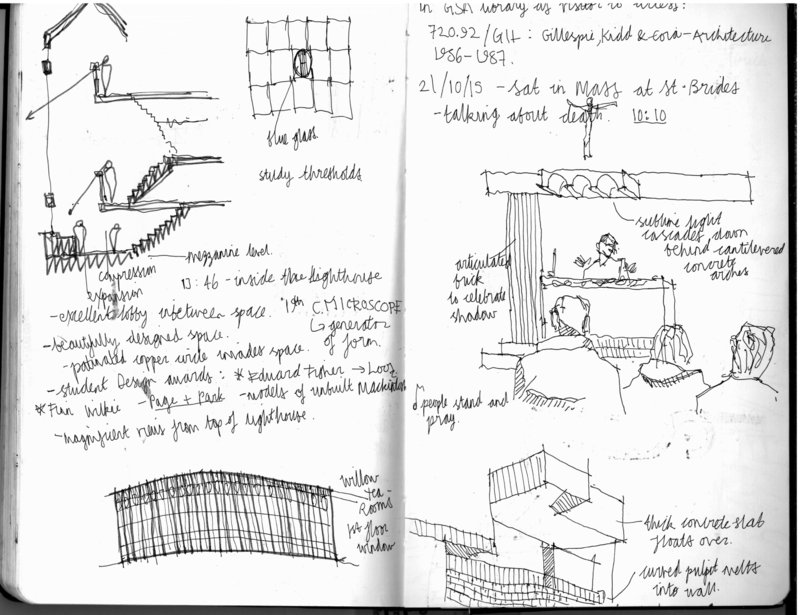 blue glass.
study thresholds
mezzanine level.
compression
expansion
13:46 - inside the lighthouse
- excellent lobby inbetween space.
"19th C. MICROSCOPE
↳ generator
of form.
- beautifully designed space.
- patinated copper wide invades space.
- student Design awards: * Eduard Fisher → Loos
* Fun Wilkie - Page + Park - models of unbuilt Mackintosh
- magnificent views from top of lighthouse.
willow
tea
rooms
1st floor
window
in GSA library as visitor to access:
720.92/GIL: Gillespie, Kidd & Coia - Architecture
1956-1987.
21/10/15 - sat in Mass at St. Brides
- talking about death. 10:10
sublime light
cascades down
behind cantilevered
concrete
arches
articulated
brick
to celebrate
shadow
people stand and
pray.
thick concrete slab
floats over.
curved pulpit melts
into wall.